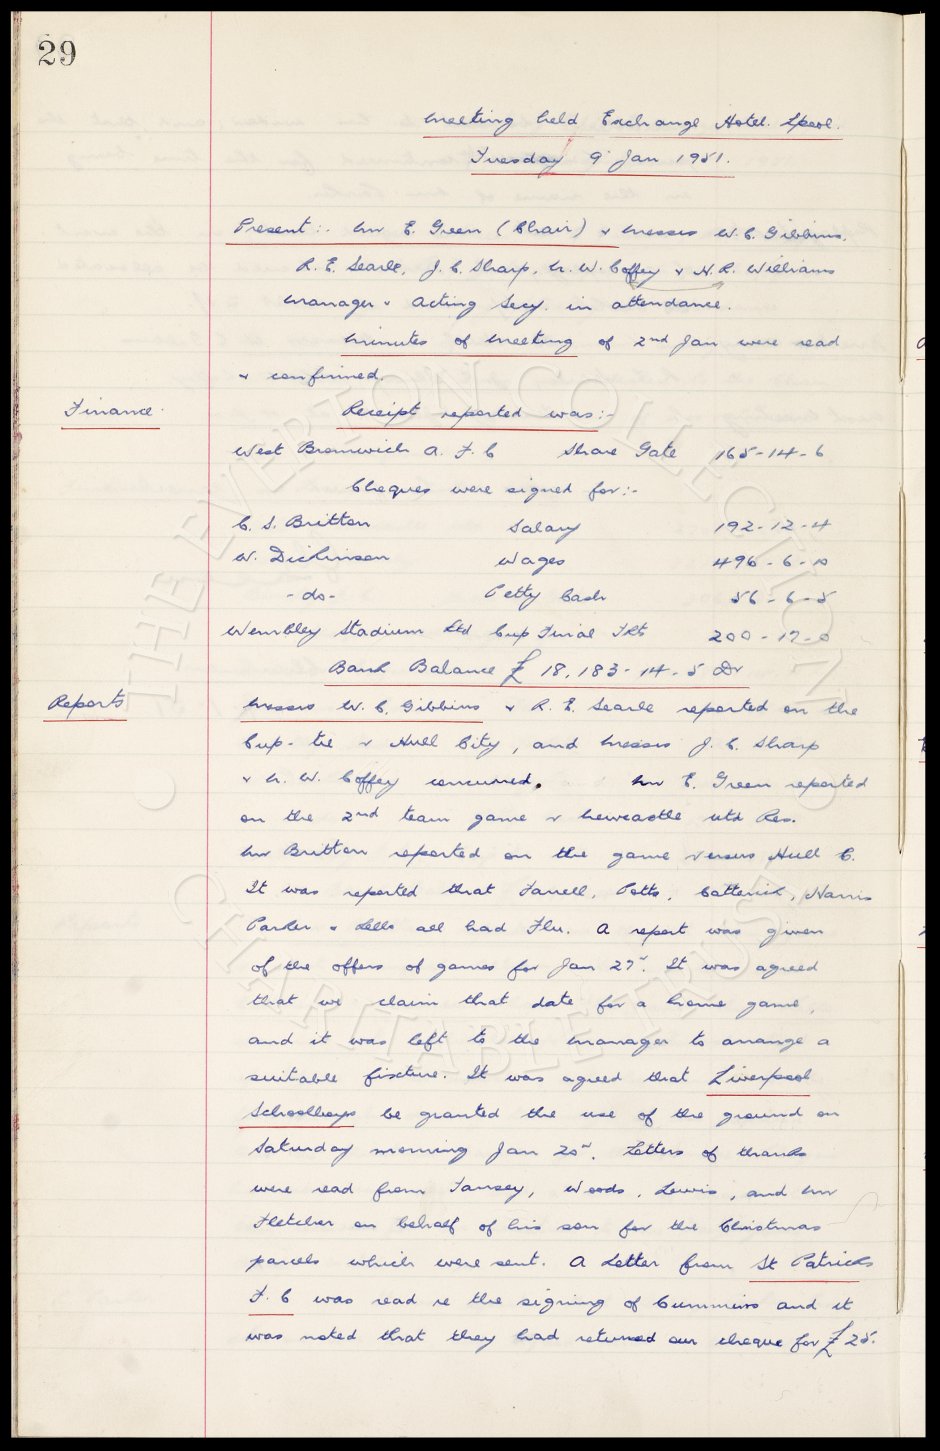 29
Meeting held Exchange Hotel. Lpool.
Tuesday 9 Jan 1951.
Present:- Mr E. Green (Chair) & Messrs W. C. Gibbins.
R. E. Searle, J. C. Sharp, N. W. Coffey & H. R. Williams
Manager & Acting Secy. in attendance.
Minutes of Meeting of 2nd Jan were read
& confirmed.
Finance.
Receipt reported was:-
West Bromwich A. F. C Share Gate 165-14-6
Cheques were signed for:-
C. S. Britton Salary 192-12-4
W. Dickinson Wages 496-6-10
-do- Petty Cash 56-6-5
Wembley Stadium Ltd Cup Final Tkts 200-17-0
Bank Balance £18,183-14-5 Dr
Reports
Messrs W. C. Gibbins & R. E. Searle reported on the
Cup-tie v Hull City, and Messrs J. C. Sharp
& N. W. Coffey concurred. Mr E. Green reported
on the 2nd team game v Newcastle Utd Res.
Mr Britton reported on the game versus Hull C.
It was reported that Farrell, Potts, Catterick, Harris
Parker & Lello all had Flu. A report was given
of the offers of games for Jan 27". It was agreed
that we claim that date for a home game,
and it was left to the Manager to arrange a
suitable fixture. It was agreed that Liverpool
Schoolboys be granted the use of the ground on
Saturday morning Jan 20". Letters of thanks
were read from Tansey, Woods, Lewis, and Mr
Fletcher on behalf of his son for the Christmas
parcels which were sent. A Letter from St Patricks
F. C was read re the signing of Cummins and it
was noted that they had returned our cheque for £25.
THE EVERTON COLLECTION
CHARITABLE TRUST